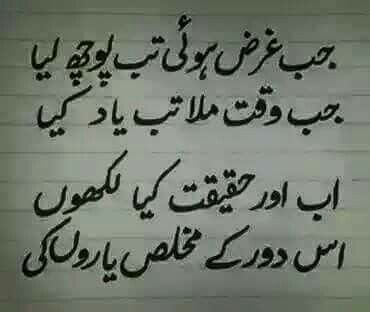 جب غرض ہوئی تب پوچھ لیا
جب وقت ملا تب یاد کیا
اب اور حقیقت کیا لکھوں
اس دور کے مخلص یاروں کی